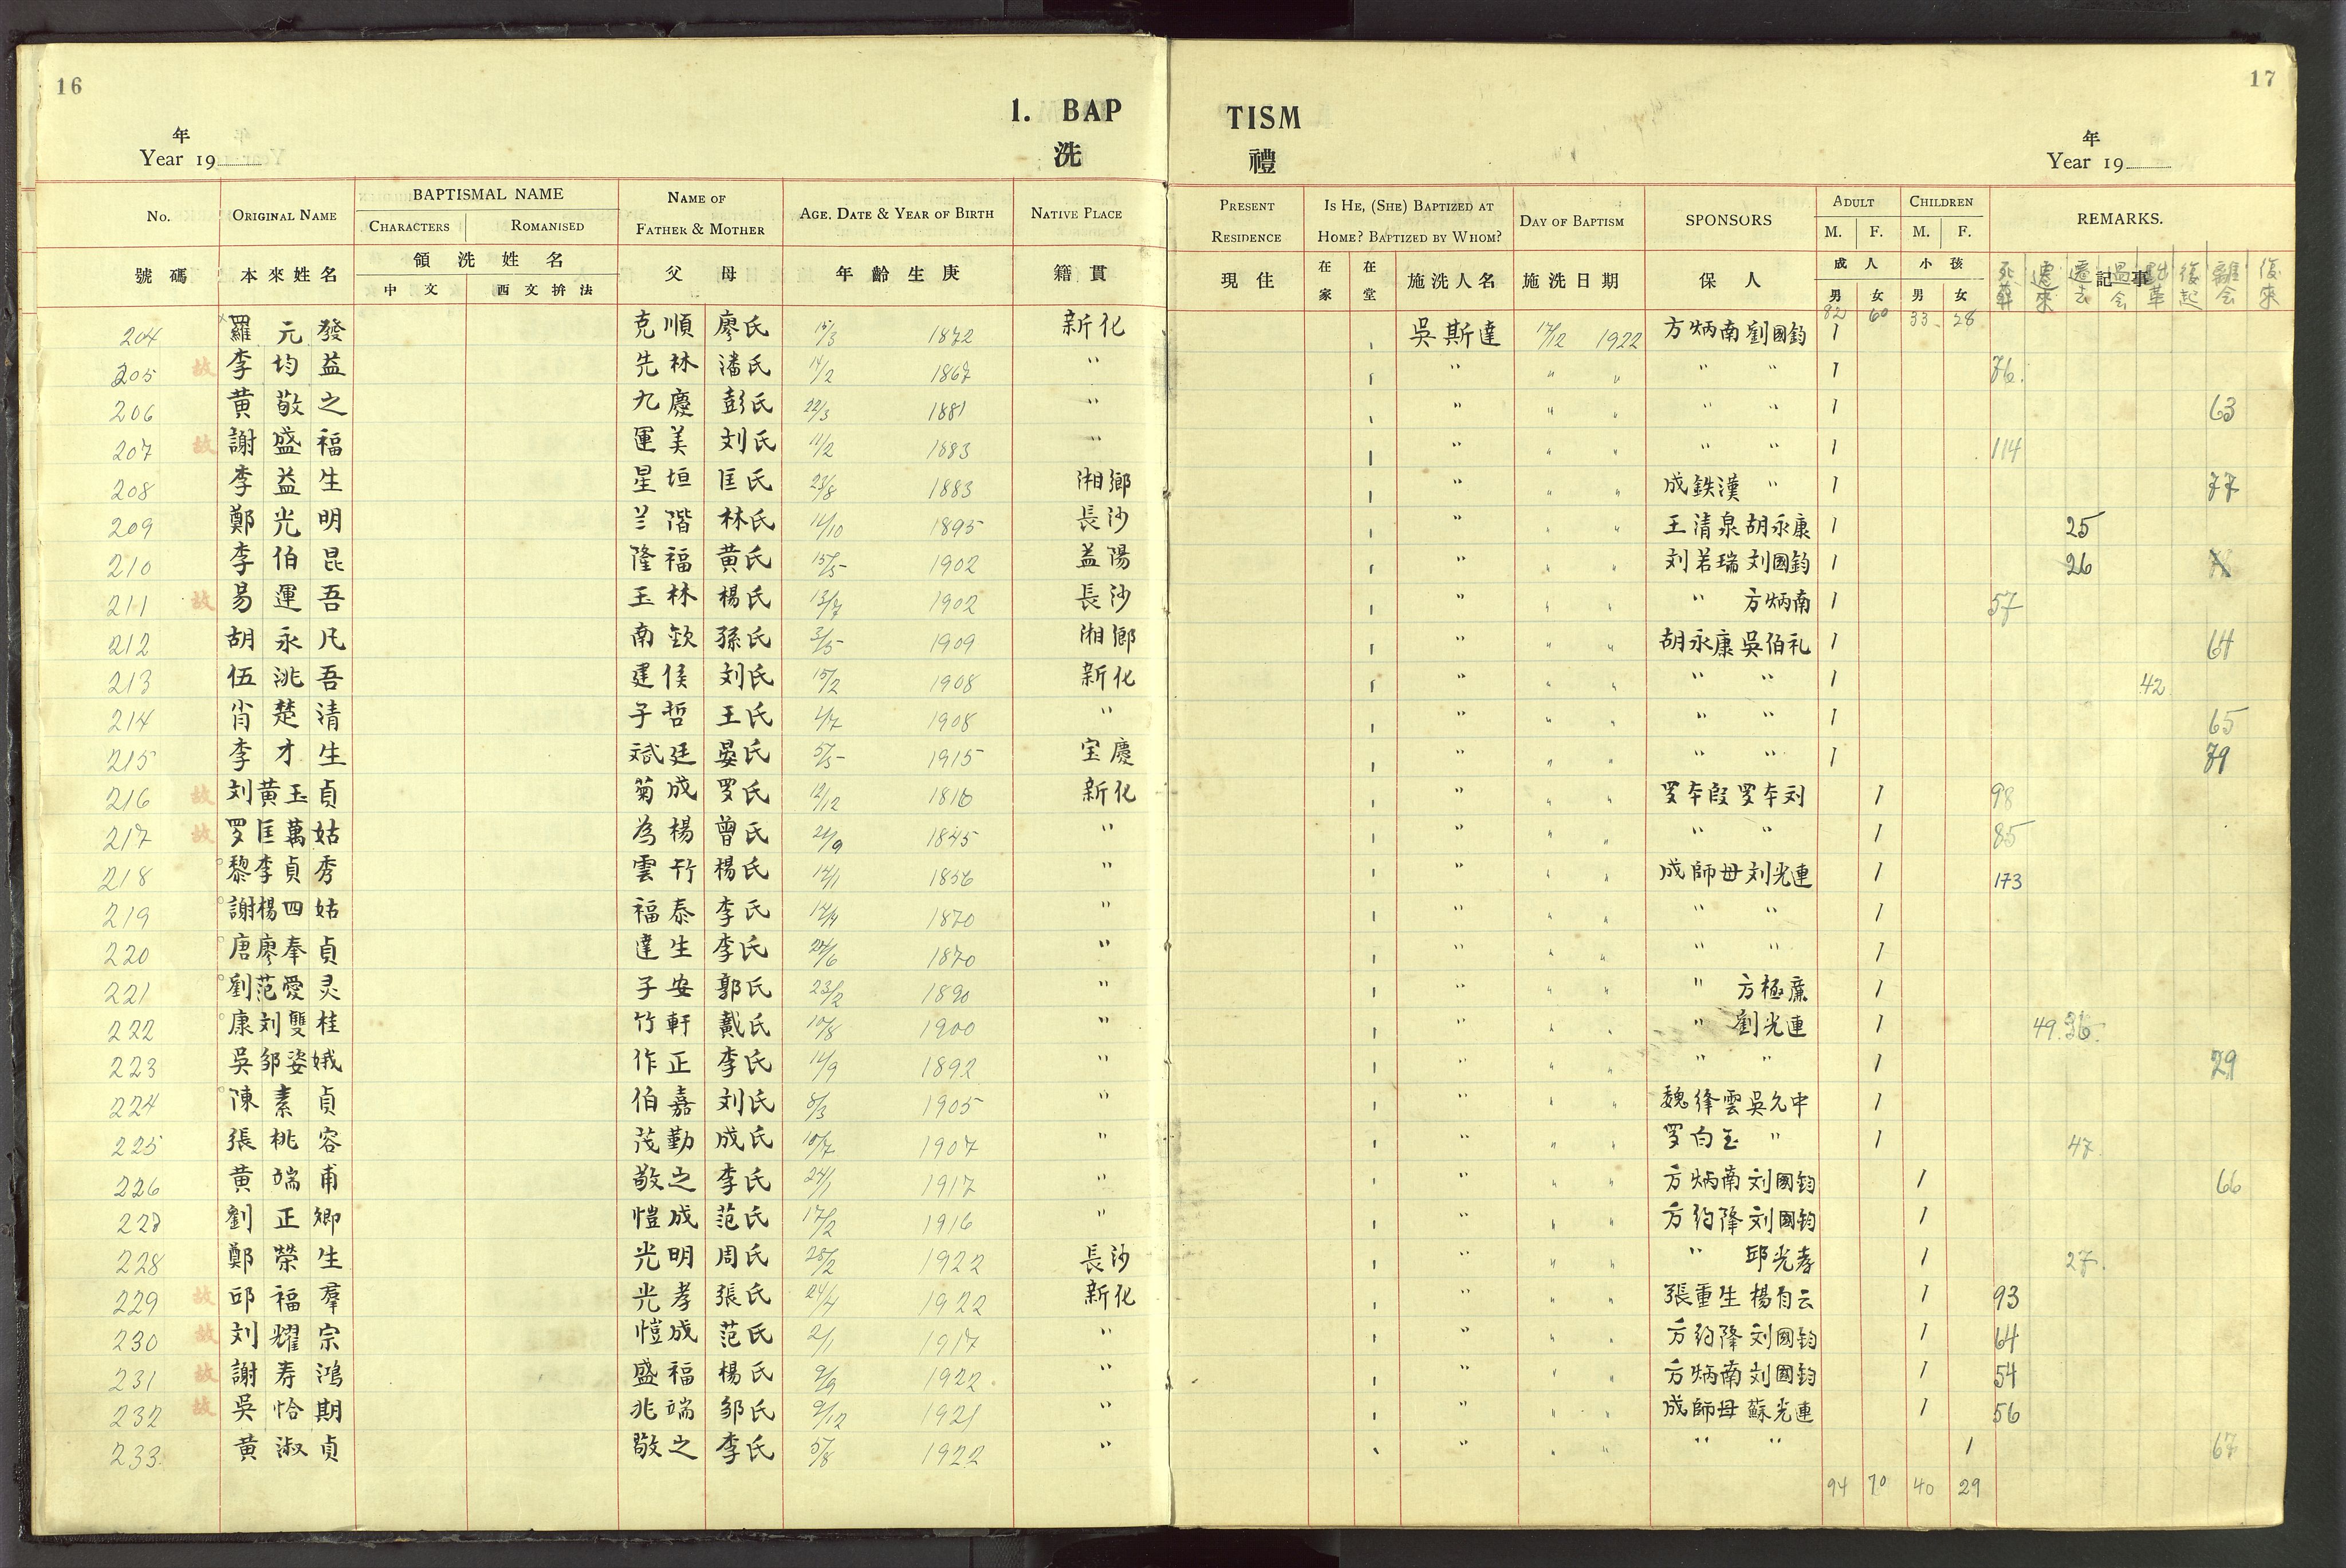 16
17
1. BAP TISM
洗 禮
年 年
Year 19 Year 19
No. ORIGINAL NAME BAPTISMAL NAME NAME OF FATHER & MOTHER AGE, DATE & YEAR OF BIRTH NATIVE PLACE PRESENT RESIDENCE IS HE, (SHE) BAPTIZED AT HOME? BAPTIZED BY WHOM? DAY OF BAPTISM SPONSORS ADULT CHILDREN REMARKS.
CHARACTERS ROMANISED M. F. M. F.
號碼 本來姓名 領洗姓名 父母 年齡生庚 籍貫 現住 在家 在堂 施洗人名 施洗日期 保人 成人 小孩 記事
中文 西文拚法 男 女 男 女 遷來 遷去 過會 復起 離会 復來
82 60 33 28
204 羅元發 克順 廖氏 15/3 1872 新化 吳斯達 17/12 1922 方炳南 劉國鈞 1
205 故 李均益 先林 潘氏 14/2 1867 " " " " " " 1 76.
206 黄敬之 九慶 彭氏 22/3 1881 " " " " " " 1 63
207 故 謝盛福 運美 刘氏 11/2 1883 " " " " " " 1 114
208 李益生 星垣 匡氏 23/8 1883 湘鄉 " " " 成鉄漢 " 1 77
209 鄭光明 兰階 林氏 14/10 1895 長沙 " " " 王清泉 胡永康 1 25
210 李伯昆 隆福 黄氏 15/5 1902 益陽 " " " 刘若瑞 刘國鈞 1 26
211 故 易運吾 玉林 楊氏 13/7 1902 長沙 " " " " 方炳南 1 57
212 胡永凡 南欽 孫氏 3/5 1909 湘鄉 " " " 胡永康 吳伯礼 1 64
213 伍洮吾 建侯 刘氏 15/2 1908 新化 " " " " " 1 42
214 肖楚清 子哲 王氏 1908 " " " " " " 1 65
215 李才生 斌廷 晏氏 5/5 1915 宝慶 " " " " " 1 79
216 故 刘黄玉貞 菊成 罗氏 12/12 1816 新化 " " " 1 98
217 故 罗匡萬姑 為楊 曾氏 21/9 1845 " " " " " " 1 85
218 黎李貞秀 雲竹 楊氏 1856 " " " " 成師母 刘光連 1 173
219 謝楊四姑 福泰 李氏 1870 " " " " " " 1
220 唐廖奉貞 達生 李氏 1870 " " " " " " 1
221 劉范愛灵 子安 郭氏 23/2 1890 " " " " " 方極廉 1
222 康刘雙桂 竹軒 戴氏 10/8 1900 " " " " " 劉光連 1 49. 36.
223 吳邹姿娥 作正 李氏 14/9 1892 " " " " " " 1 29
224 陳素貞 伯嘉 刘氏 8/3 1905 " " " " 魏絳雲 吳允中 1
225 張桃容 茂勤 成氏 10/7 1907 " " " " 罗白玉 " 1 47
226 黄端甫 敬之 李氏 24/1 1917 " " " " 方炳南 刘國鈞 1 66
227 劉正卿 愷成 范氏 17/2 1916 " " " " 方約隆 刘國鈞 1
228 鄭榮生 光明 周氏 28/2 1922 長沙 " " " " 邱光孝 1 27.
229 故 邱福羣 光孝 張氏 24/4 1922 新化 " " " 張重生 楊自云 1 93
230 故 刘耀宗 愷成 范氏 2/1 1917 " " " " 方約隆 刘國鈞 1 64
231 故 謝寿鴻 盛福 楊氏 9/9 1922 " " " " 方炳南 刘國鈞 1 54
232 故 吳恰期 兆端 邹氏 9/12 1921 " " " " 成師母 蘇光連 1 56
233 黄淑貞 敬之 李氏 5/8 1922 " " " " " " 1 67
94 70 40 29